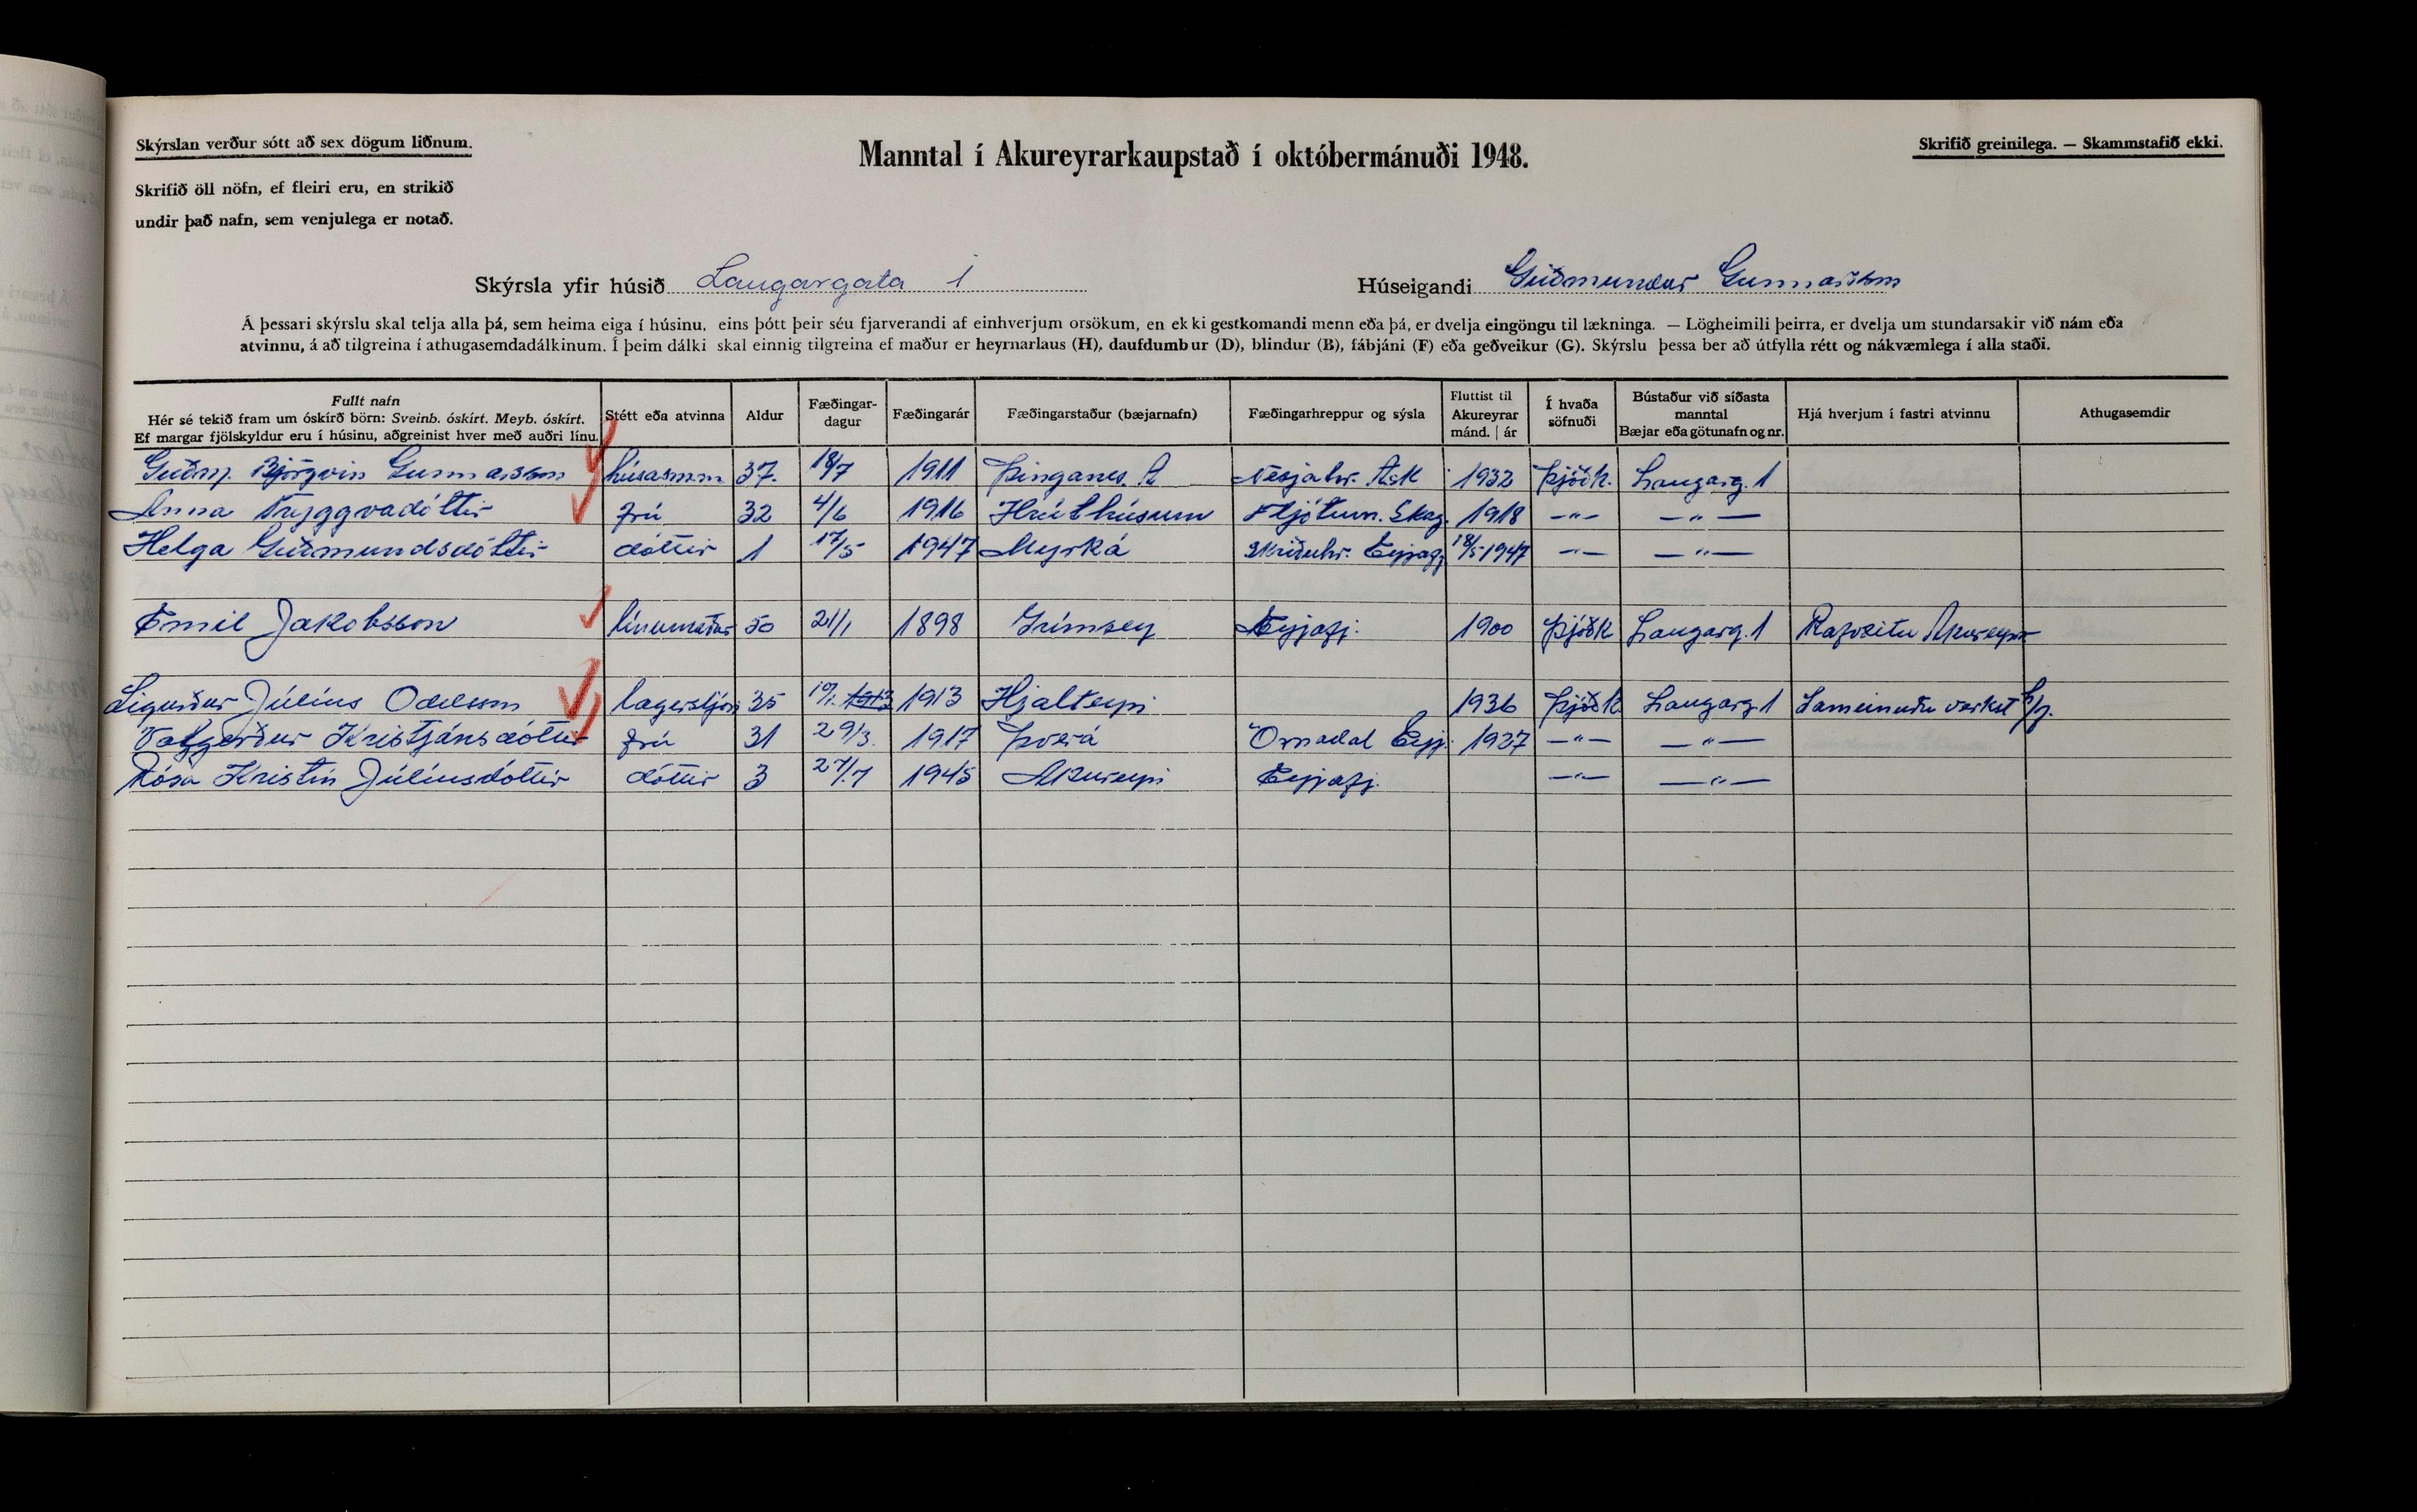 Skýrslan verður sótt að sex dögum liðnum.
Skrifið öll nöfn, ef fleiri eru, en strikið
undir það nafn, sem venjulega er notað.
Manntal í Akureyrarkaupstað í októbermánuði 1948.
Skrifið greinilega. — Skammstafið ekki.
Skýrsla yfir húsið Laugargata 1 Húseigandi Guðmundur Gunnarsson
Á þessari skýrslu skal telja alla þá, sem heima eiga í húsinu, eins þótt þeir séu fjarverandi af einhverjum orsökum, en ekki gestkomandi menn eða þá, er dvelja eingöngu til lækninga. — Lögheimili þeirra, er dvelja um stundarsakir við nám eða
atvinnu, á að tilgreina í athugasemdadálkinum. Í þeim dálki skal einnig tilgreina ef maður er heyrnarlaus (H), daufdumbur (D), blindur (B), fábjáni (F) eða geðveikur (G). Skýrslu þessa ber að útfylla rétt og nákvæmlega í alla staði.
Fullt nafn
Hér sé tekið fram um óskírð börn: Sveinb. óskírt. Meyb. óskírt.
Ef margar fjölskyldur eru í húsinu, aðgreinist hver með auðri línu.
Stétt eða atvinna
Aldur
Fæðingar-
dagur
Fæðingarár
Fæðingarstaður (bæjarnafn)
Fæðingarhreppur og sýsla
Fluttist til
Akureyrar
mánd. | ár
Í hvaða
söfnuði
Bústaður við síðasta
manntal
Bæjar eða götunafn og nr.
Hjá hverjum í fastri atvinnu
Athugasemdir
Guðm. Björgvin Gunnarsson húsasm.m. 37. 18/7 1911 Þinganes. A Nesjahr. A.Sk 1932 Þjóðk. Laugarg. 1
Anna Tryggvadóttir frú 32 4/6 1916 Hraúthúsum Fljótum. Skag. 1918 —"— —"—
Helga Guðmundsdóttir dóttir 1 17/5 1947 Myrká Skriðuhr. Eyjafj 18/5 1947 —"— —"—
Emil Jakobsson línumaður 50 21/1 1898 Grímsey Eyjafj. 1900 Þjóðk Laugarg. 1 Rafveitu Akureyrar
Sigurður Júlíus Oddsson lagerstjóri 35 1913 1913 Hjalteyri 1936 Þjóðk Laugarg. 1 Sameinuðu verkst h/f.
Valgerður Kristjánsdóttir frú 31 29/3. 1917 Þverá Öxnadal Eyj. 1927 —"— —"—
Rósa Kristín Júlíusdóttir dóttir 3 27/7 1945 Akureyri Eyjafj. —"— —"—